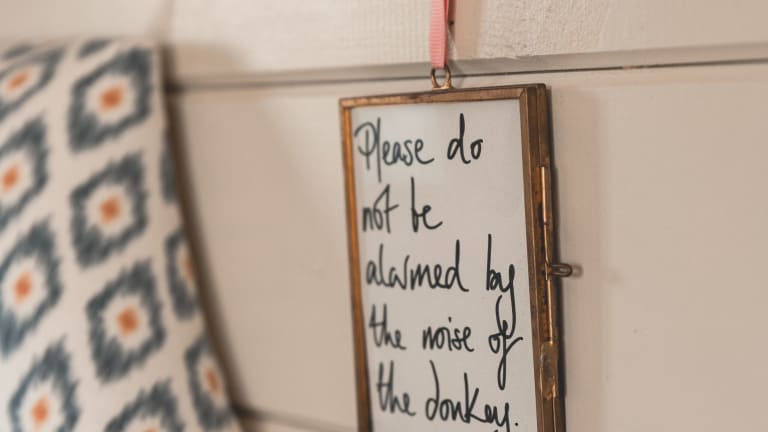 Please do
not be
alarmed by
the noise of
the donkey.